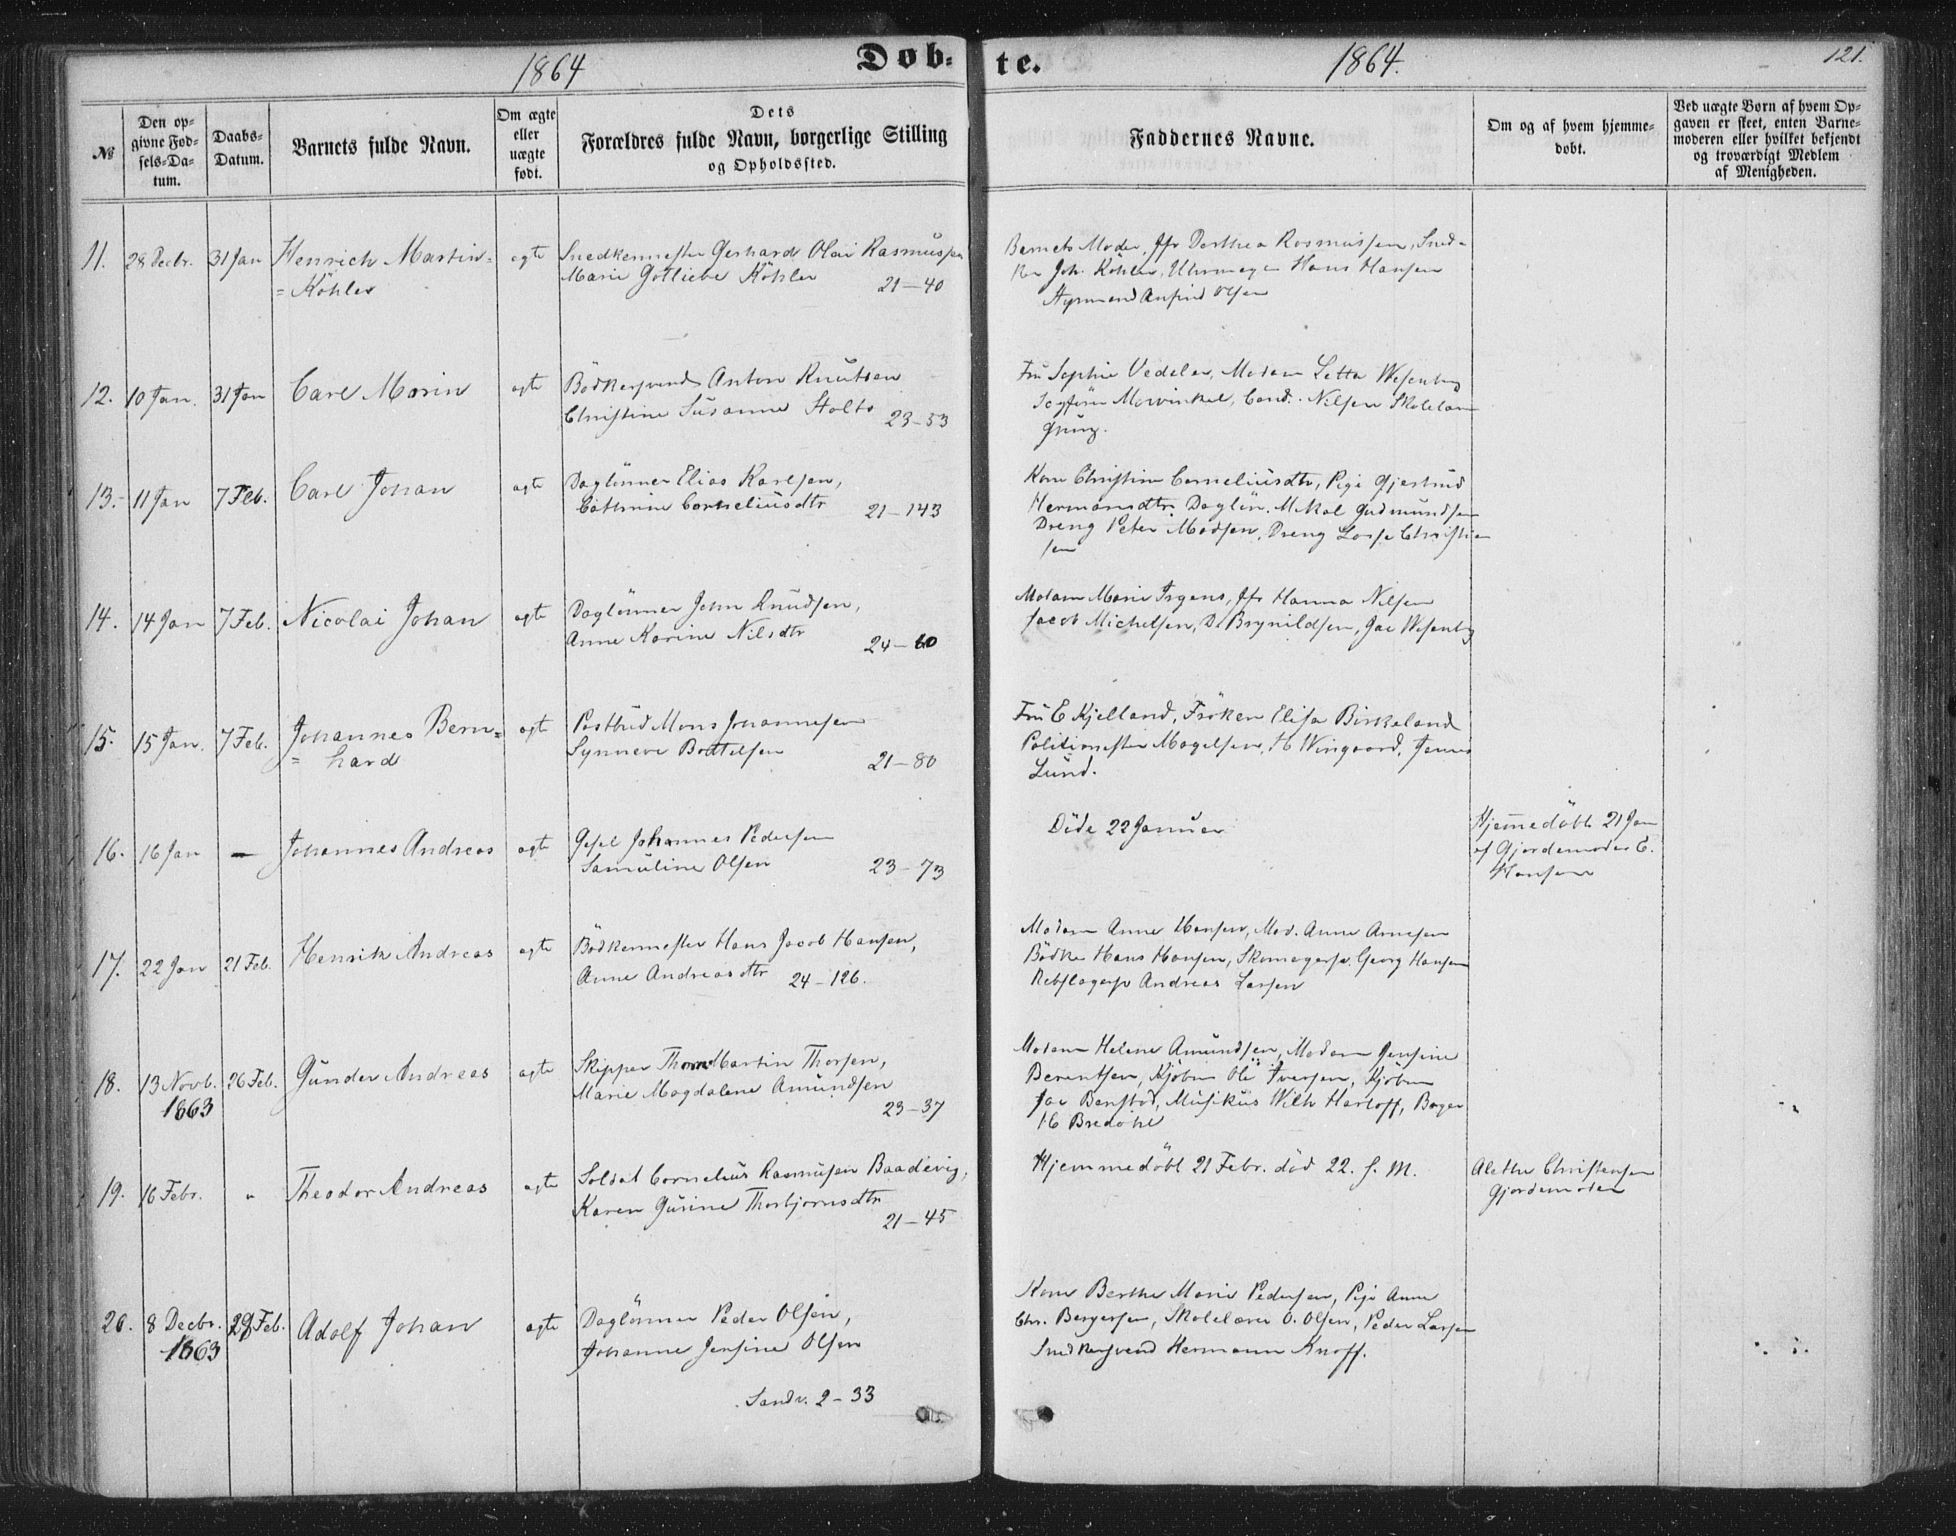 1864
Døb-
te.
1864.
121.
№
Den op-
givne Fød-
sels-Da-
tum.
Daabs-
Datum.
Barnets fulde Navn.
Om ægte
eller
uægte
født.
Dets
Forældres fulde Navn, borgerlige Stilling
og Opholdssted.
Faddernes Navne.
Om og af hvem hjemme-
døbt.
Ved uægte Børn af hvem Op-
gaven er skeet, enten Barne-
moderen eller hvilket bekjendt
og troværdigt Medlem
af Menigheden.
11. 28 Decbr. 31 Jan Henrich Martin=
= Köhler
ægte
Snedkermester Gerhard Olai Rasmussen
Marie Gotliebe Köhler 21-40
Barnets Moder, Jfr Dorthea Rasmussen, Sned-
ker Joh. Köhler, Uhrmager Hans Hansen
Anfind Olsen
12. 10 Jan. 31 Jan Carl Marin
ægte
Bödkersvend Anton Knutsen
Christine Susanne Stolts 23-53
Fru Sophie Vedeler, Madam Letta Wesenberg
Mowinkel, Cand. Nilsen
13. 11 Jan 7 Feb. Carl Johan
ægte
Daglönner Elias Karlsen,
Cathrine Corneliusdtr 21-143
Kone Christine Corneliusdtr, Pige Gjertrud
Hermansdtr. Daglön. Mikal Gudmundsen
Dreng Peter Madsen, Dreng Lasse Christian
sen
14. 14 Jan 7 Feb. Nicolai Johan
ægte
Daglönner John Knudsen,
Anne Karine Nilsdtr 24-60
Madam Marie Irgens, Jfr Hanna Nilsen
Jacob Michelsen, D. Brynildsen, Jac Wesenberg
15. 15 Jan. 7 Feb. Johannes Bern=
= hard
ægte
Postbud Mons Johannesen
Synneve Bottelsen 21-80
Fru E Kjelland, Fröken Elisa Birkeland
Politimester Magelsen, H Wingaard,
Lund.
16. 16 Jan — Johannes Andreas
ægte
Gesel Johannes Pedersen
Samuline Olsen 23-73
Döde 22 Januar
Hjemmedöbt 21 Jan
af Gjordemoder E.
Hansen
17. 22 Jan 21 Feb. Henrik Andreas
ægte
Bödkermester Hans Jacob Hansen,
Anne Andreasdtr 24-126.
Madam Anne Hansen, Mad. Anne Arnesen
Bödker Hans Hansen, Skomagersv. Georg Hansen
Rebslagersv Andreas Larsen
18. 13 Novb. 26 Feb. Gunder Andreas
1863
ægte
Skipper Thom Martin Thorsen,
Marie Magdalene Amundsen
23-37
Madam Helene Amundsen, Madam Jensine
Berentsen, Kjöbm Ole Iversen, Kjöbm
Jac Banstad, Musikus Wilh Hartoff, Bager
H Bredahl
19. 16 Febr. " Theodor Andreas
ægte
Soldat Cornelius Rasmusen Baadevig,
Karen Gurine Thorbjornsdtr
21-45
Hjemmedöbt 21 Febr. död 22. s. M.
Alethe Christensen
Gjordemoder
20. 8 Decbr. 29 Feb. Adolf Johan
1863
ægte
Daglönner Peder Olsen,
Johanne Jensine Olsen
Sandv. 2-33
Kone Berthe Marie Pedersen, Pige Anne
Chr. Bergersen, Skolelærer O. Olsen, Peder Larsen
Snedkersvend Hermann Knoff.